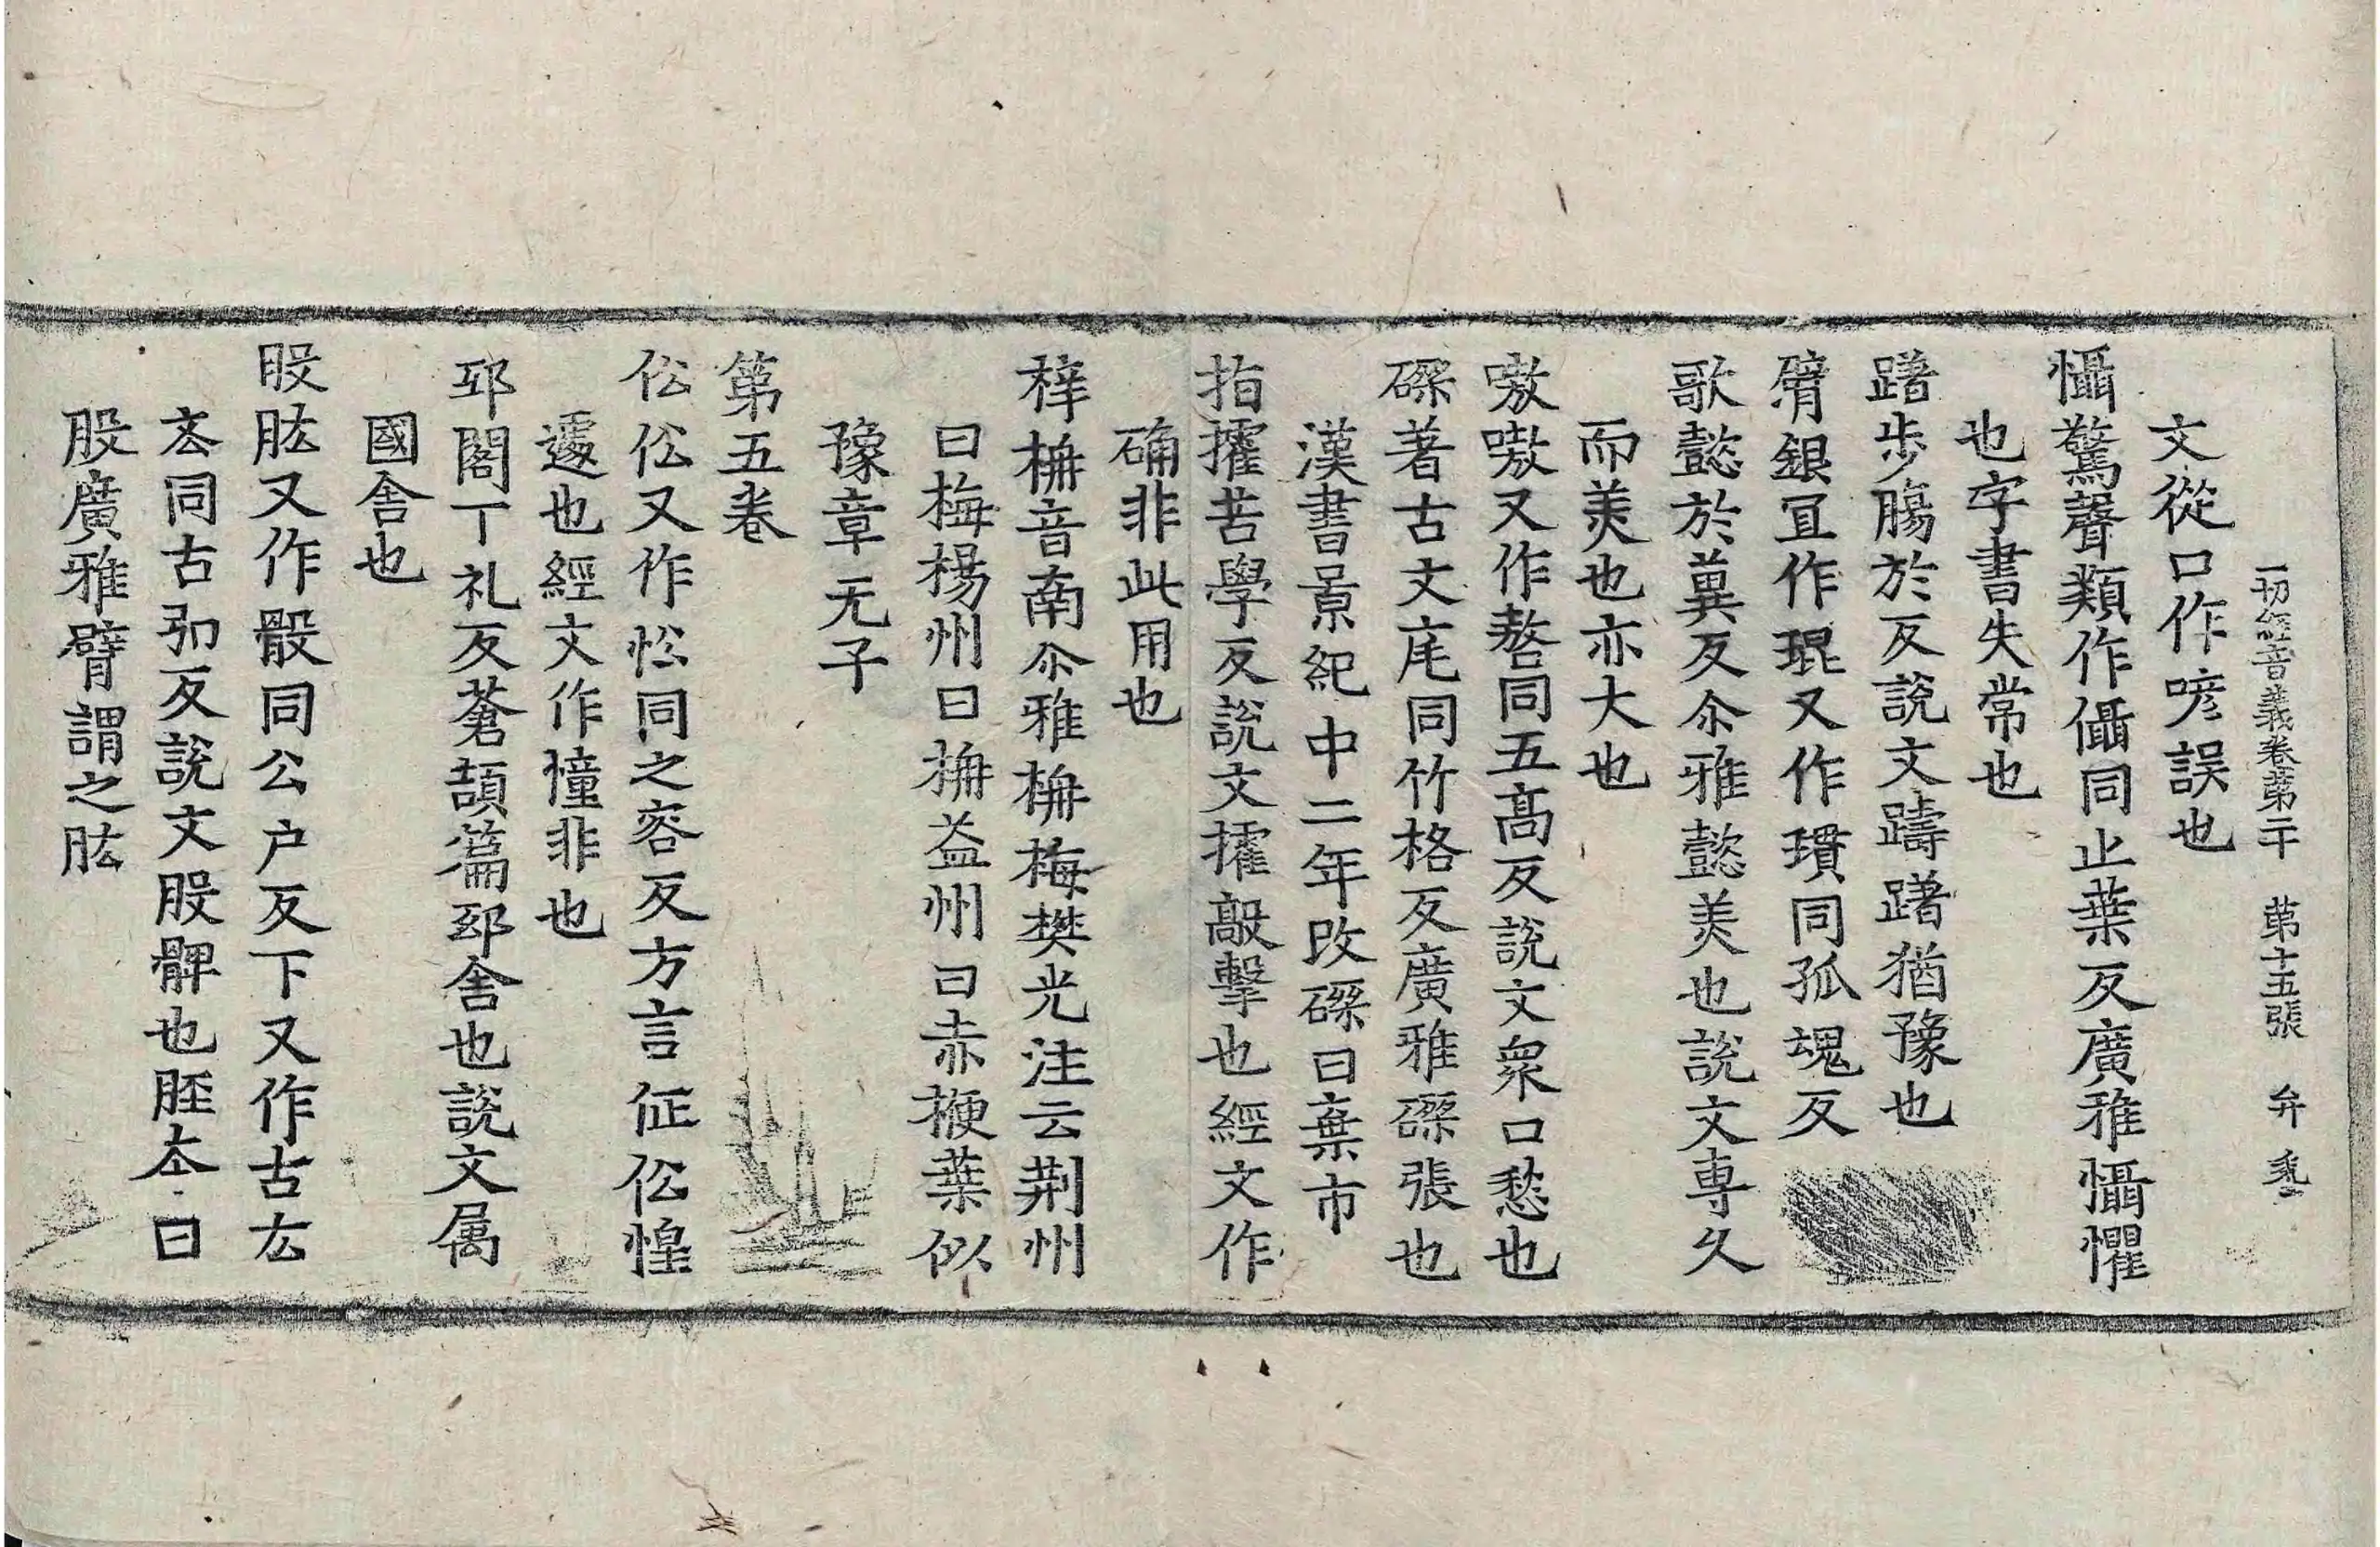 一切經音義卷第二十 第十五張 弁
文從口作喭誤也
懾驚聲類作㒤同止葉反廣雅懾懼
也字書失常也
躇步膓於反說文躊躇猶豫也
臂銀冝作琨又作瑻同孤魂反
歌懿於兾反尒雅懿美也說文專久
而美也亦大也
嗷嗷又作嶅同五髙反說文衆口愁也
磔著古文㡯同竹格反廣雅磔張也
漢書景紀中二年改磔曰棄市
指㩴苦學反說文㩴敲擊也經文作
确非此用也
梓柟音南尒雅柟梅樊光注云荆州
曰梅楊州曰柟益州曰赤楩葉似
豫章无子
第五卷
伀伀又作忪同之容反方言怔伀惶
遽也經文作憧非也
邸閣丁礼反蒼頡篇邸舍也說文属
國舍也
股肱又作骰同公户反下又作古厷
厷同古弘反說文股髀也脛本曰
股廣雅臂謂之肱